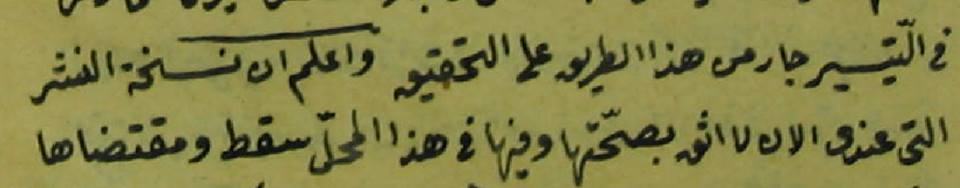 في التيسير جار من هذا الطريق على التحقيق واعلم ان نسخة النشر
التي عندي الان لا اثق بصحّتها وفيها في هذا المحلّ سقط ومقتضاها